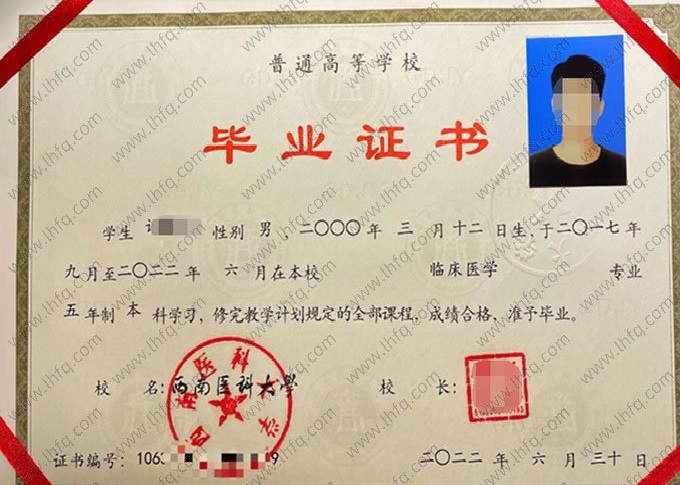 普通高等学校
毕业证书
学生 性别 男，二〇〇〇年 三 月十二日生，于二〇一七年
九月至二〇二二年 六月在本校 临床医学 专业
五年制 本 科学习，修完教学计划规定的全部课程，成绩合格，准予毕业。
校 名：西南医科大学 校 长：
西南医科大学
证书编号：1063 9 二〇二二年 六月三十日
www.lhfq.com